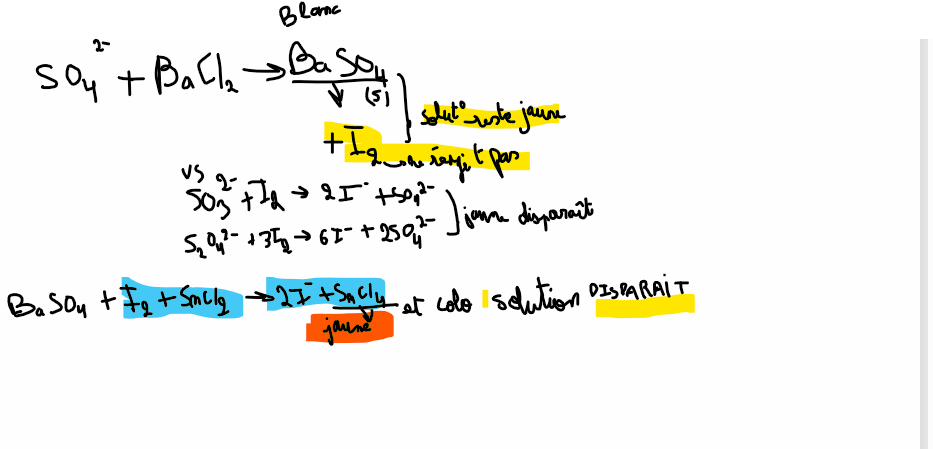 Blanc
SO₄²⁻ + BaCl₂ → BaSO₄ (s)
solut° reste jaune
+ I₂ → ne réagit pas
vs
SO₃²⁻ + I₂ → 2I⁻ + SO₄²⁻
jaune disparaît
S₂O₄²⁻ + 3I₂ → 6I⁻ + 2SO₄²⁻
BaSO₄ + I₂ + SnCl₂ → 2I⁻ + SnCl₄ et colo solution DISPARAIT
jaune